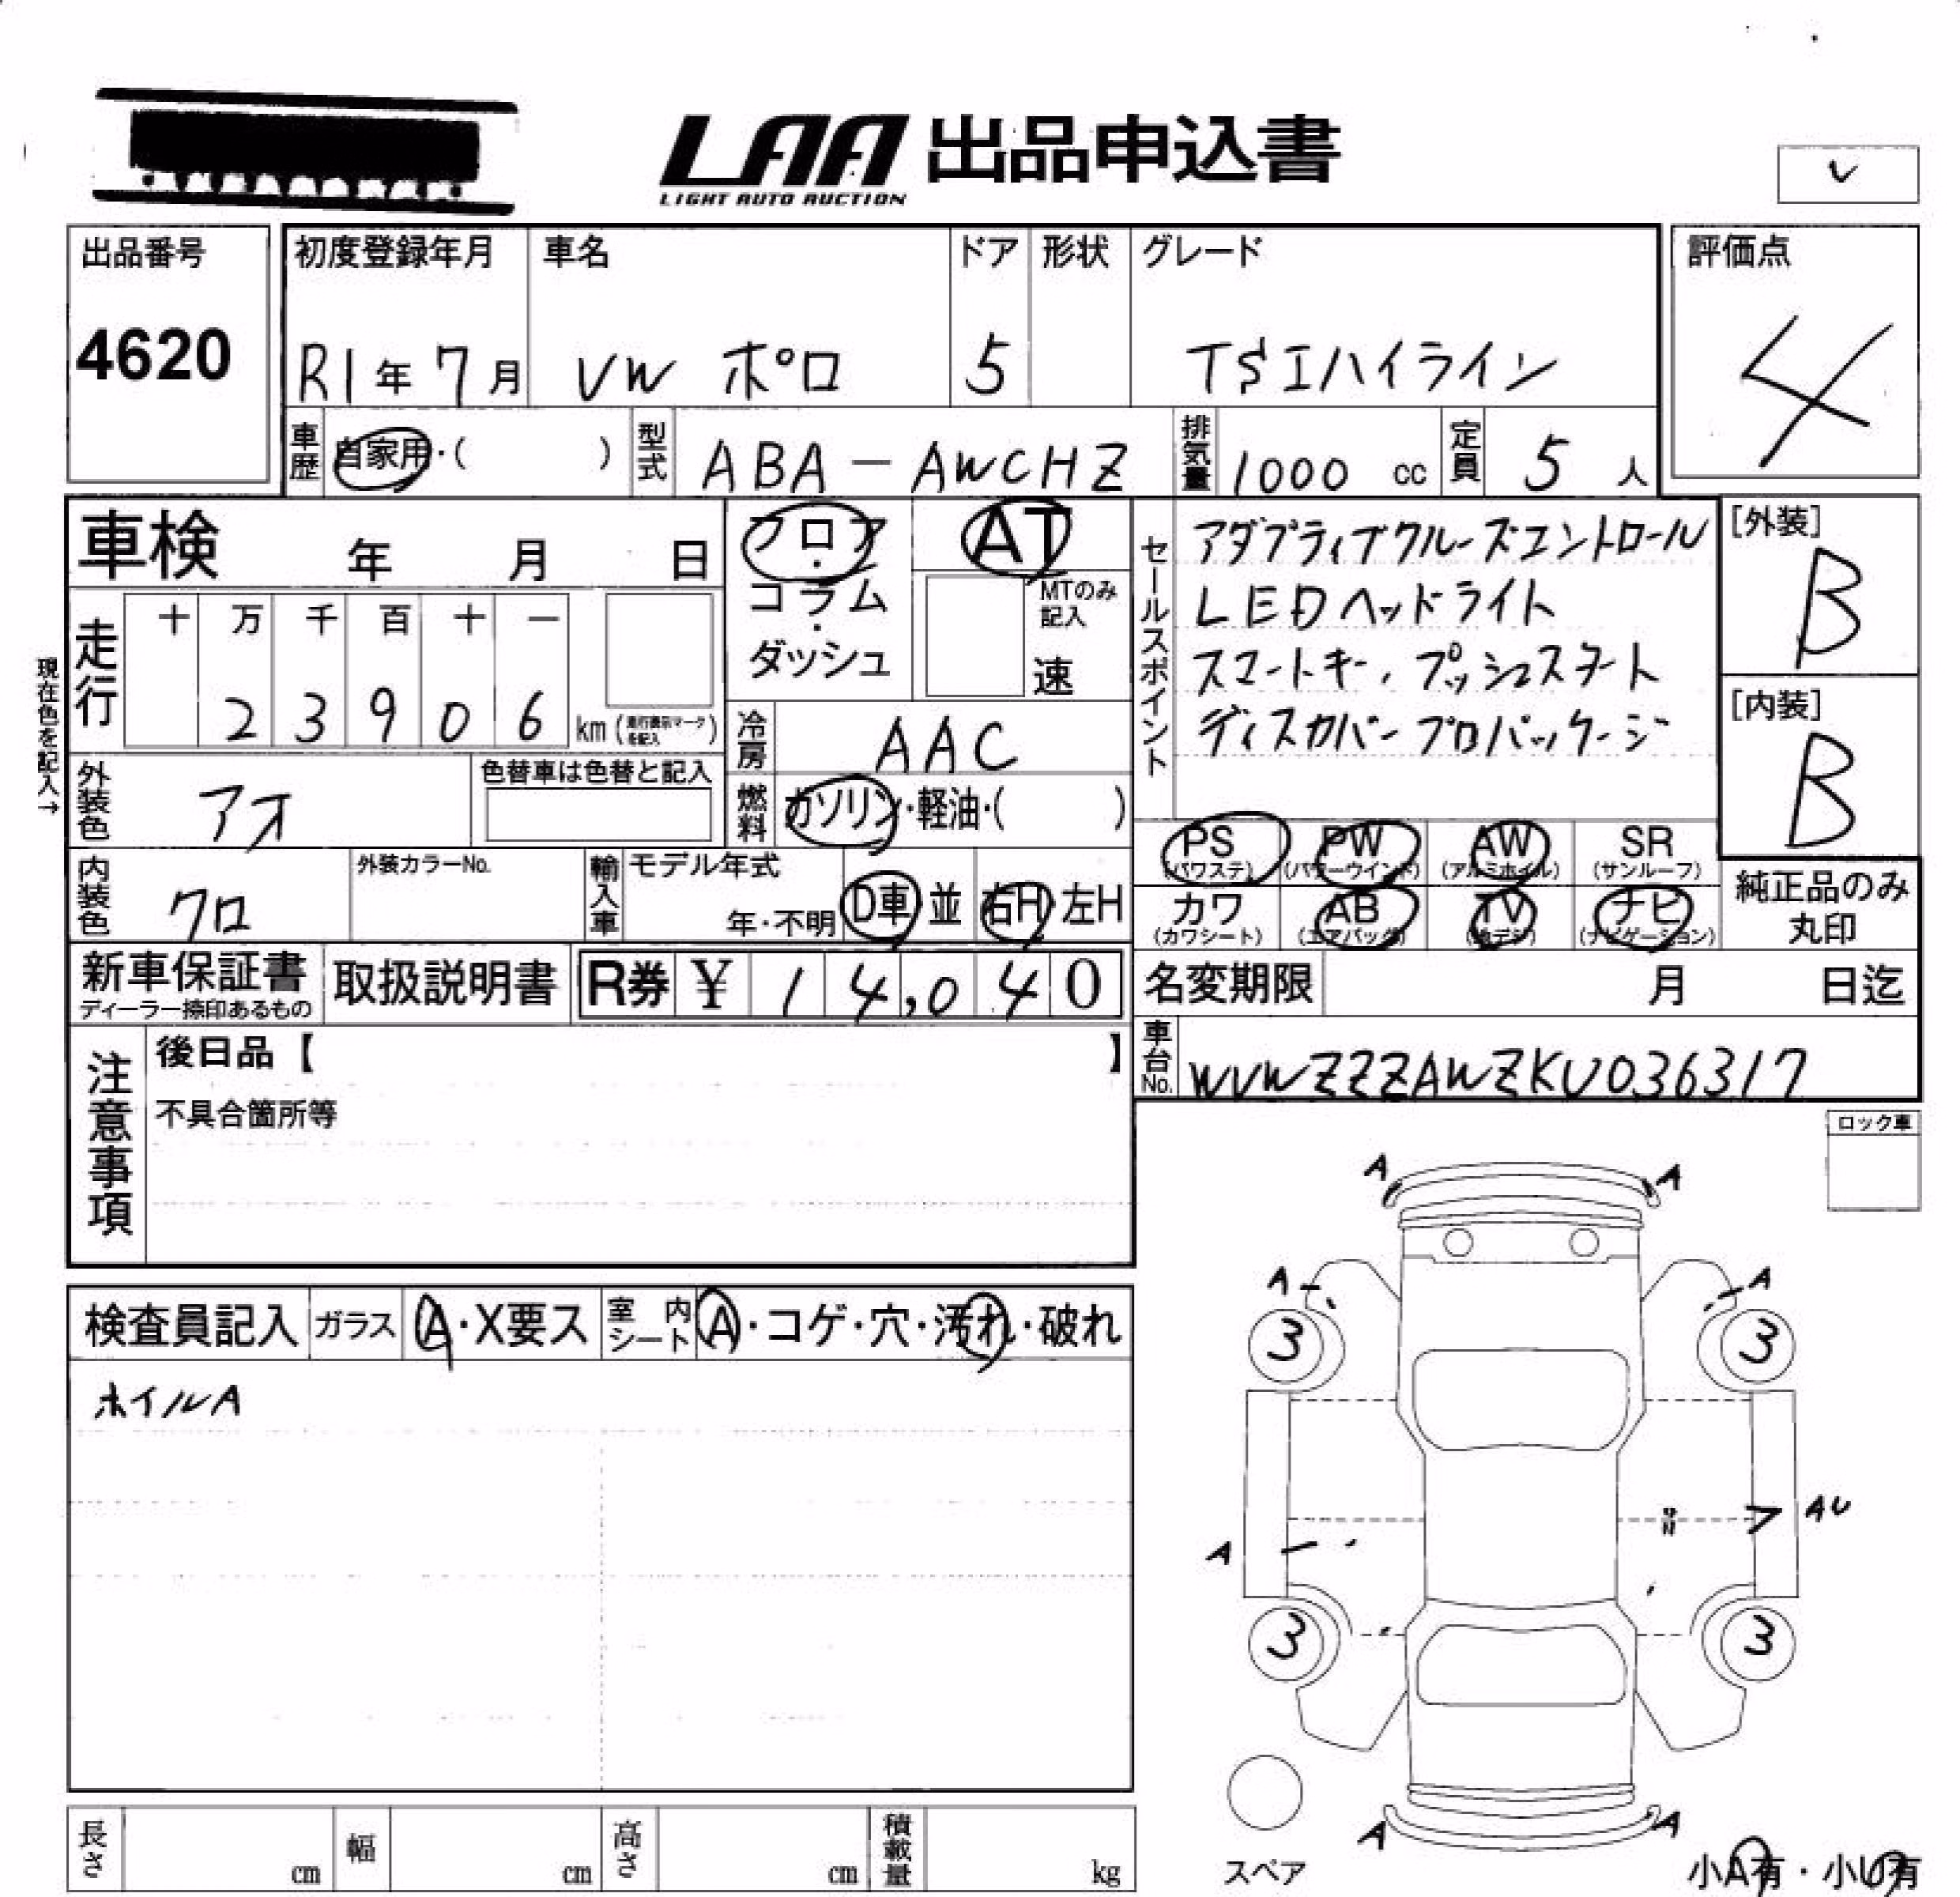 LAA 出品申込書
LIGHT AUTO AUCTION
出品番号
4620
初度登録年月
R1年7月
車名
VW ポロ
ドア
5
形状
グレード
TSIハイライン
評価点
4
車歴
自家用・( )
型式
ABA-AWCHZ
排気量
1000 cc
定員
5 人
車検 年 月 日
フロア・コラム・ダッシュ
AT
MTのみ記入
速
セールスポイント
アダプティブクルーズコントロール
LEDヘッドライト
スマートキー、プッシュスタート
ディスカバープロパッケージ
[外装]
B
[内装]
B
現在色を記入→
走行
十 万 千 百 十 一
2 3 9 0 6 km (走行表示マークを記入)
冷房
AAC
外装色
アオ
色替車は色替と記入
燃料
ガソリン・軽油・( )
PS (パワステ)
PW (パワーウインド)
AW (アルミホイル)
SR (サンルーフ)
内装色
クロ
外装カラーNo.
輸入車
モデル年式
年・不明
D車 並
右H 左H
カワ (カワシート)
AB (エアバッグ)
TV (地デジ)
ナビ (ナビゲーション)
純正品のみ丸印
新車保証書
ディーラー捺印あるもの
取扱説明書
R券 ¥ 14,040
名変期限 月 日迄
車台No.
WVWZZZAWZKU036317
注意事項
後日品【 】
不具合箇所等
ロック車
検査員記入
ガラス
A・X要ス
室内シート
A・コゲ・穴・汚れ・破れ
ホイルA
A A
A A
3 3
AU
A
3 3
A A
スペア
小A有・小U有
長さ cm
幅 cm
高さ cm
積載量 kg